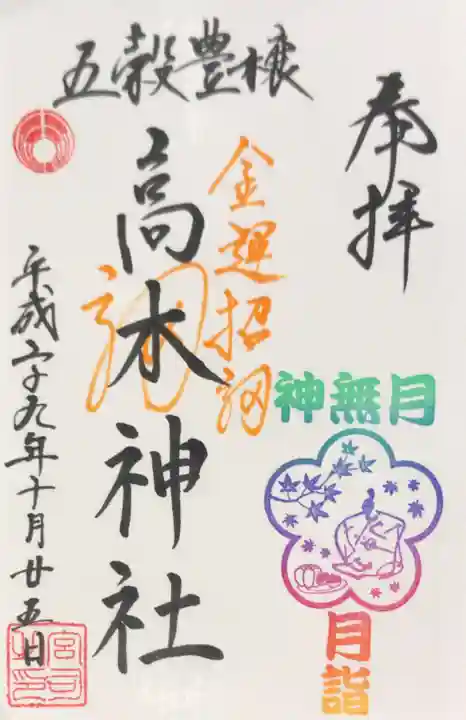 奉拝
神無月
月詣
金運招福
五穀豊穣
高木神社
平成二十九年十月廿五日